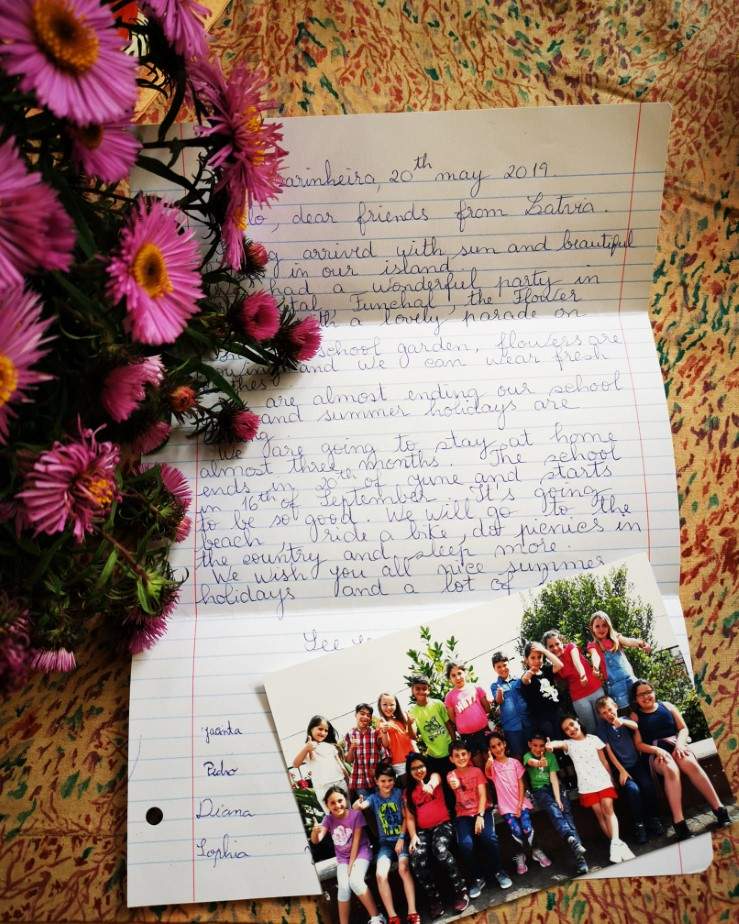 arinheira, 20th may 2019.
lo, dear friends from Latvia.
g arrived with sun and beautiful
in our island
had a wonderful party in
tal, Funchal, the Flower
th a lovely parade on
school garden, flowers are
and we can wear fresh
thes
are almost ending our school
and summer holidays are
g
We are going to stay at home
almost three months. The school
ends in 20th of June and starts
in 16th of September. It's going
to be so good. We will go to the
beach, ride a bike, do picnics in
the country and sleep more.
We wish you all nice summer
holidays and a lot of
See
Jacinta
Pedro
Diana
Sophia